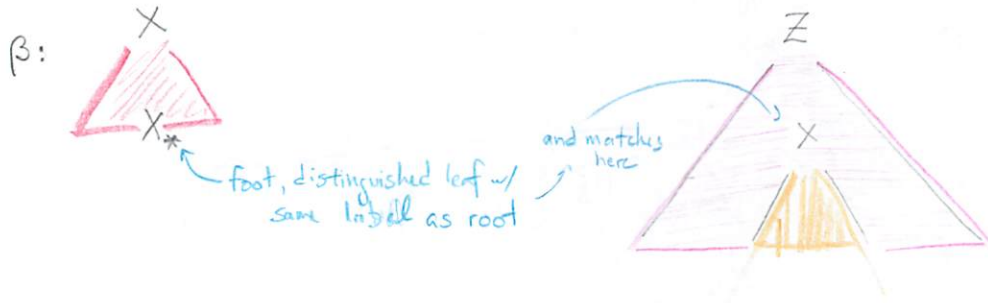 X
β:
X*
foot, distinguished leaf w/
same label as root
and matches
here
Z
X